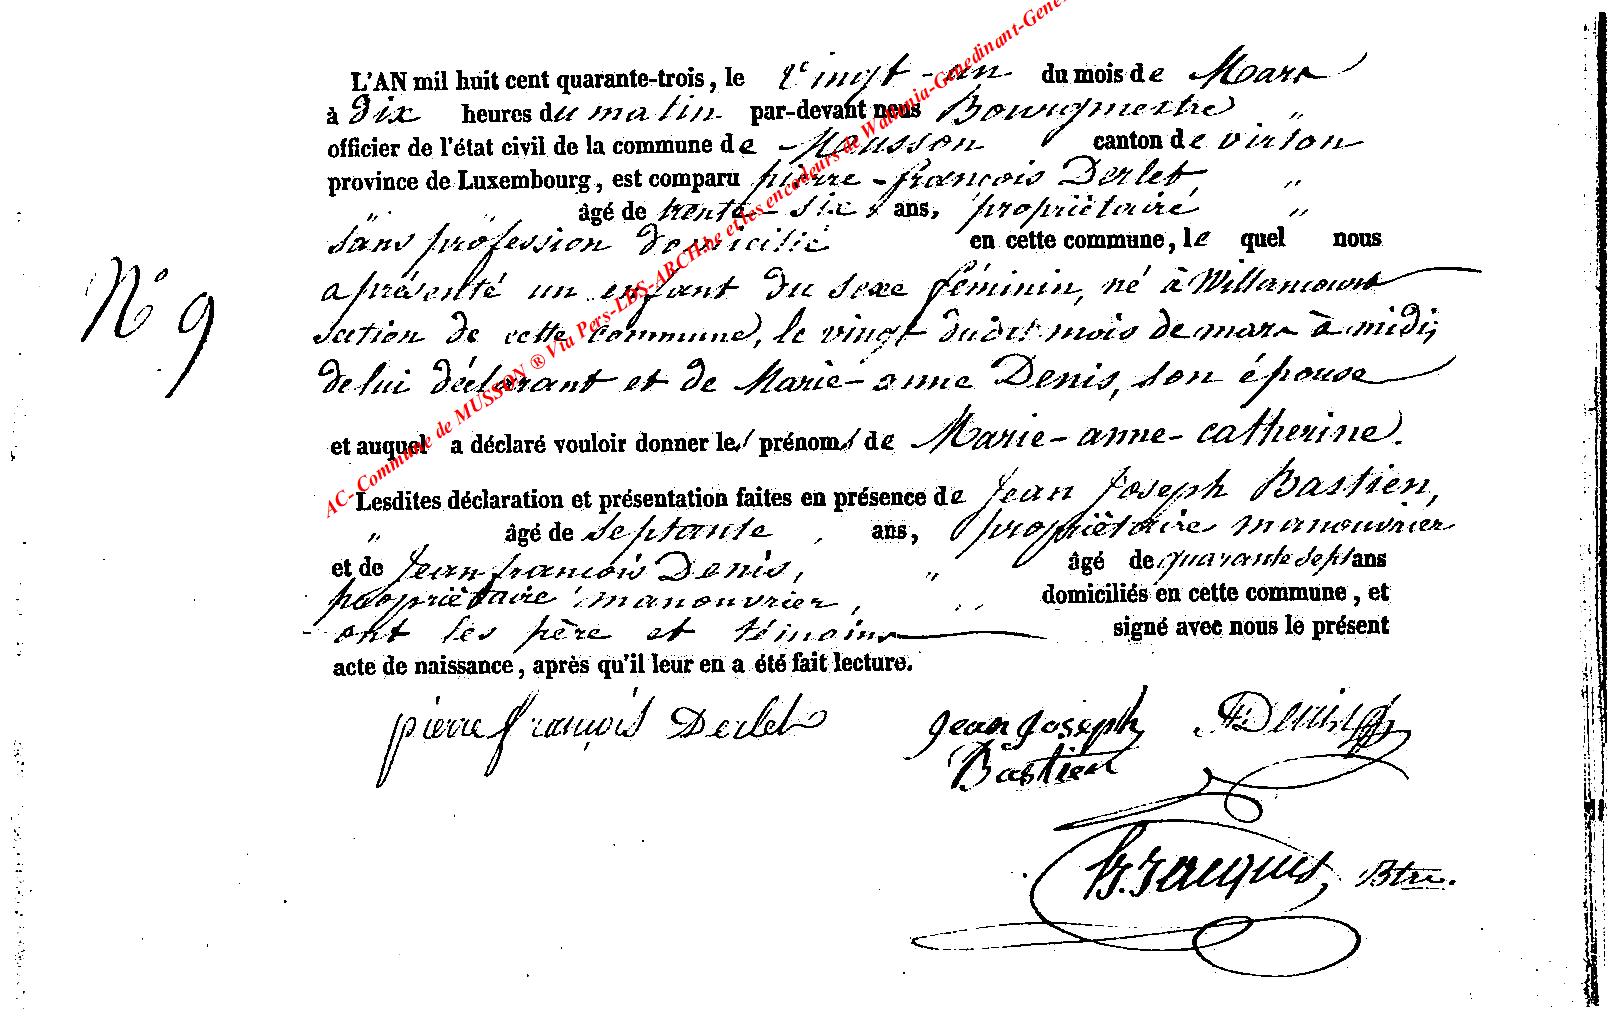 L'AN mil huit cent quarante-trois, le vingt-un du mois de Mars
à dix heures du matin par-devant nous Bourgmestre "
officier de l'état civil de la commune de Musson canton de virton
province de Luxembourg, est comparu pierre-françois Derlet, "
âgé de trente-six ans, propriétaire "
sans profession domicilié en cette commune, le quel nous
a présenté un enfant du sexe féminin, né à Willancourt
section de cette commune, le vingt dudit mois de mars à midi,
de lui déclarant et de Marie-anne Denis, son épouse
N° 9
et auquel a déclaré vouloir donner les prénoms de Marie-anne-catherine.
Lesdites déclaration et présentation faites en présence de Jean Joseph Bastien,
" âgé de septante ans, propriètaire manouvrier
et de Jean françois Denis, " âgé de quarante sept ans
propriètaire manouvrier, " domiciliés en cette commune, et
ont les père et témoins signé avec nous le présent
acte de naissance, après qu'il leur en a été fait lecture.
pierre françois Derlet
Jean Joseph Denis
Bastien
Jacques, Btre.
AC-Commune de MUSSON ® Via Pers-LDS-ARCH.be et les encodeurs de Wallonia-Genedinant-Gene